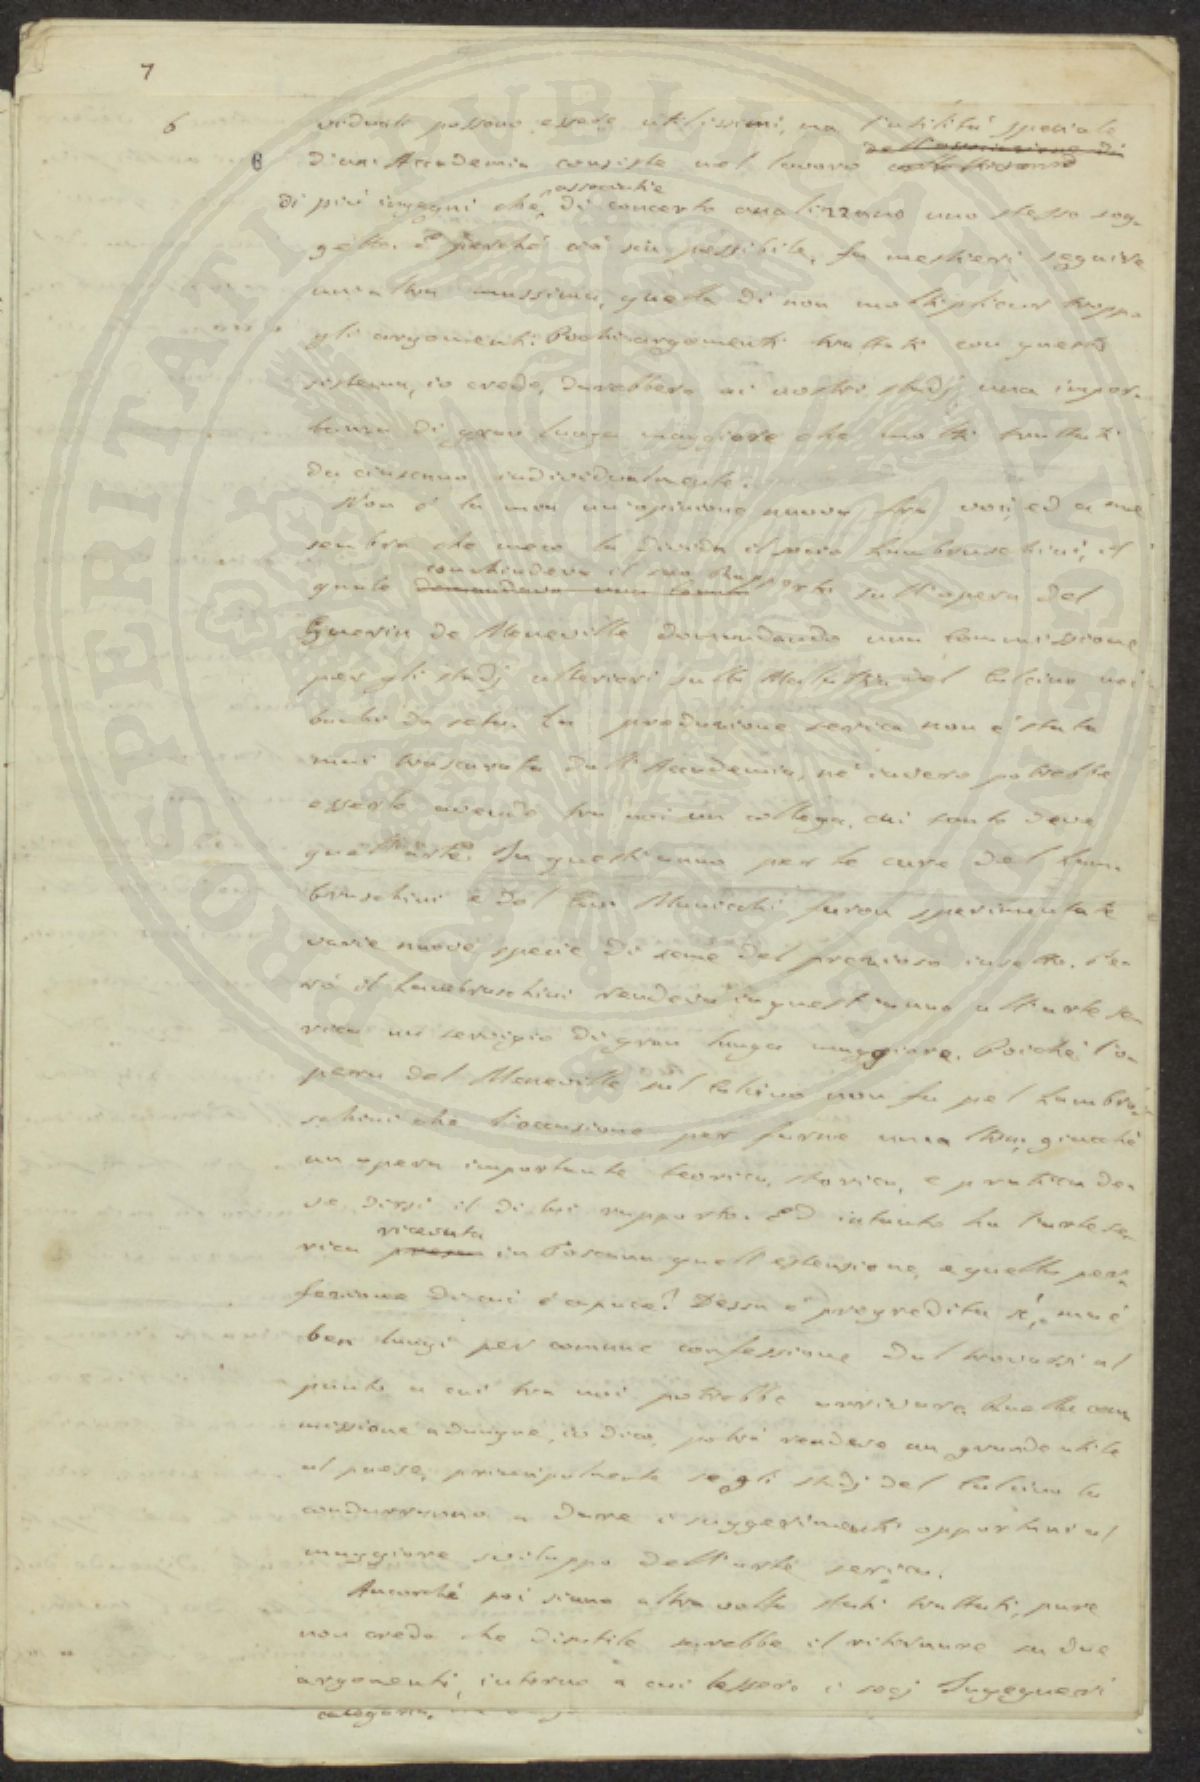 7
6
viduali possono essere utilissimi, ma l'utilità speciale
dell'associazione di
B d'un Accademia consiste nel lavoro
associati
di più ingegni che, di concerto analizzano uno stesso sog-
getto. E perché ciò sia possibile, fa mestieri seguire
un altra massima, quella di non moltiplicar troppo
gli argomenti. Pochi argomenti trattati con questo
sistema, io credo, darebbero ai nostri studj una impor-
tanza di gran lunga maggiore che molti trattati
da ciascuno individualmente.
Non è la mia un'opinione nuova fra voi, ed a me
sembra che meco la divida il socio Lambruschini, il
conchiudeva il suo Rapporto
quale domandava una sull'opera del
Guerin de Meneville domandando una Commissione
per gli studj ulteriori sulla Malattia del Calcino nei
bachi da seta. La produzione serica non è stata
mai trascurata dall'Accademia, né invero potrebbe
esserlo avendo tra noi un collega, cui tanto deve
quell'arte. In quest'anno per le cure del Lam-
bruschini e del furon sperimentate
varie nuove specie di seme del prezioso insetto. Pe-
rò il Lambruschini rendeva in quest'anno all'arte se-
rica un servigio di gran lunga maggiore. Poiché l'o-
pera del Meneville sul Calcino non fu pel Lambru-
schini che l'occasione per farne una giacché
un opera importante teorica, storica, e pratica de-
ve dirsi il di lui rapporto. Ed intanto ha l'arte se-
ricevuta
rica presa in Toscana quell'estensione, e quella per-
fezione di cui è capace? Dessa è progredita sì, ma è
ben lungi per comune confessione dal trovarsi al
punto a cui tra noi potrebbe arrivare. Quella com
missione adunque, io dico, potrà rendere un grande utile
al paese, principalmente se gli studj del Calcino la
condurranno a dare i suggerimenti opportuni al
maggiore sviluppo dell'arte serica.
Ancorché poi siano altra volta stati trattati, pure
non credo che disutile sarebbe il ritornare su due
argomenti, intorno a cui lessero i socj Ingegneri
PROSPERITATI PVBLICAE AVGENDAE